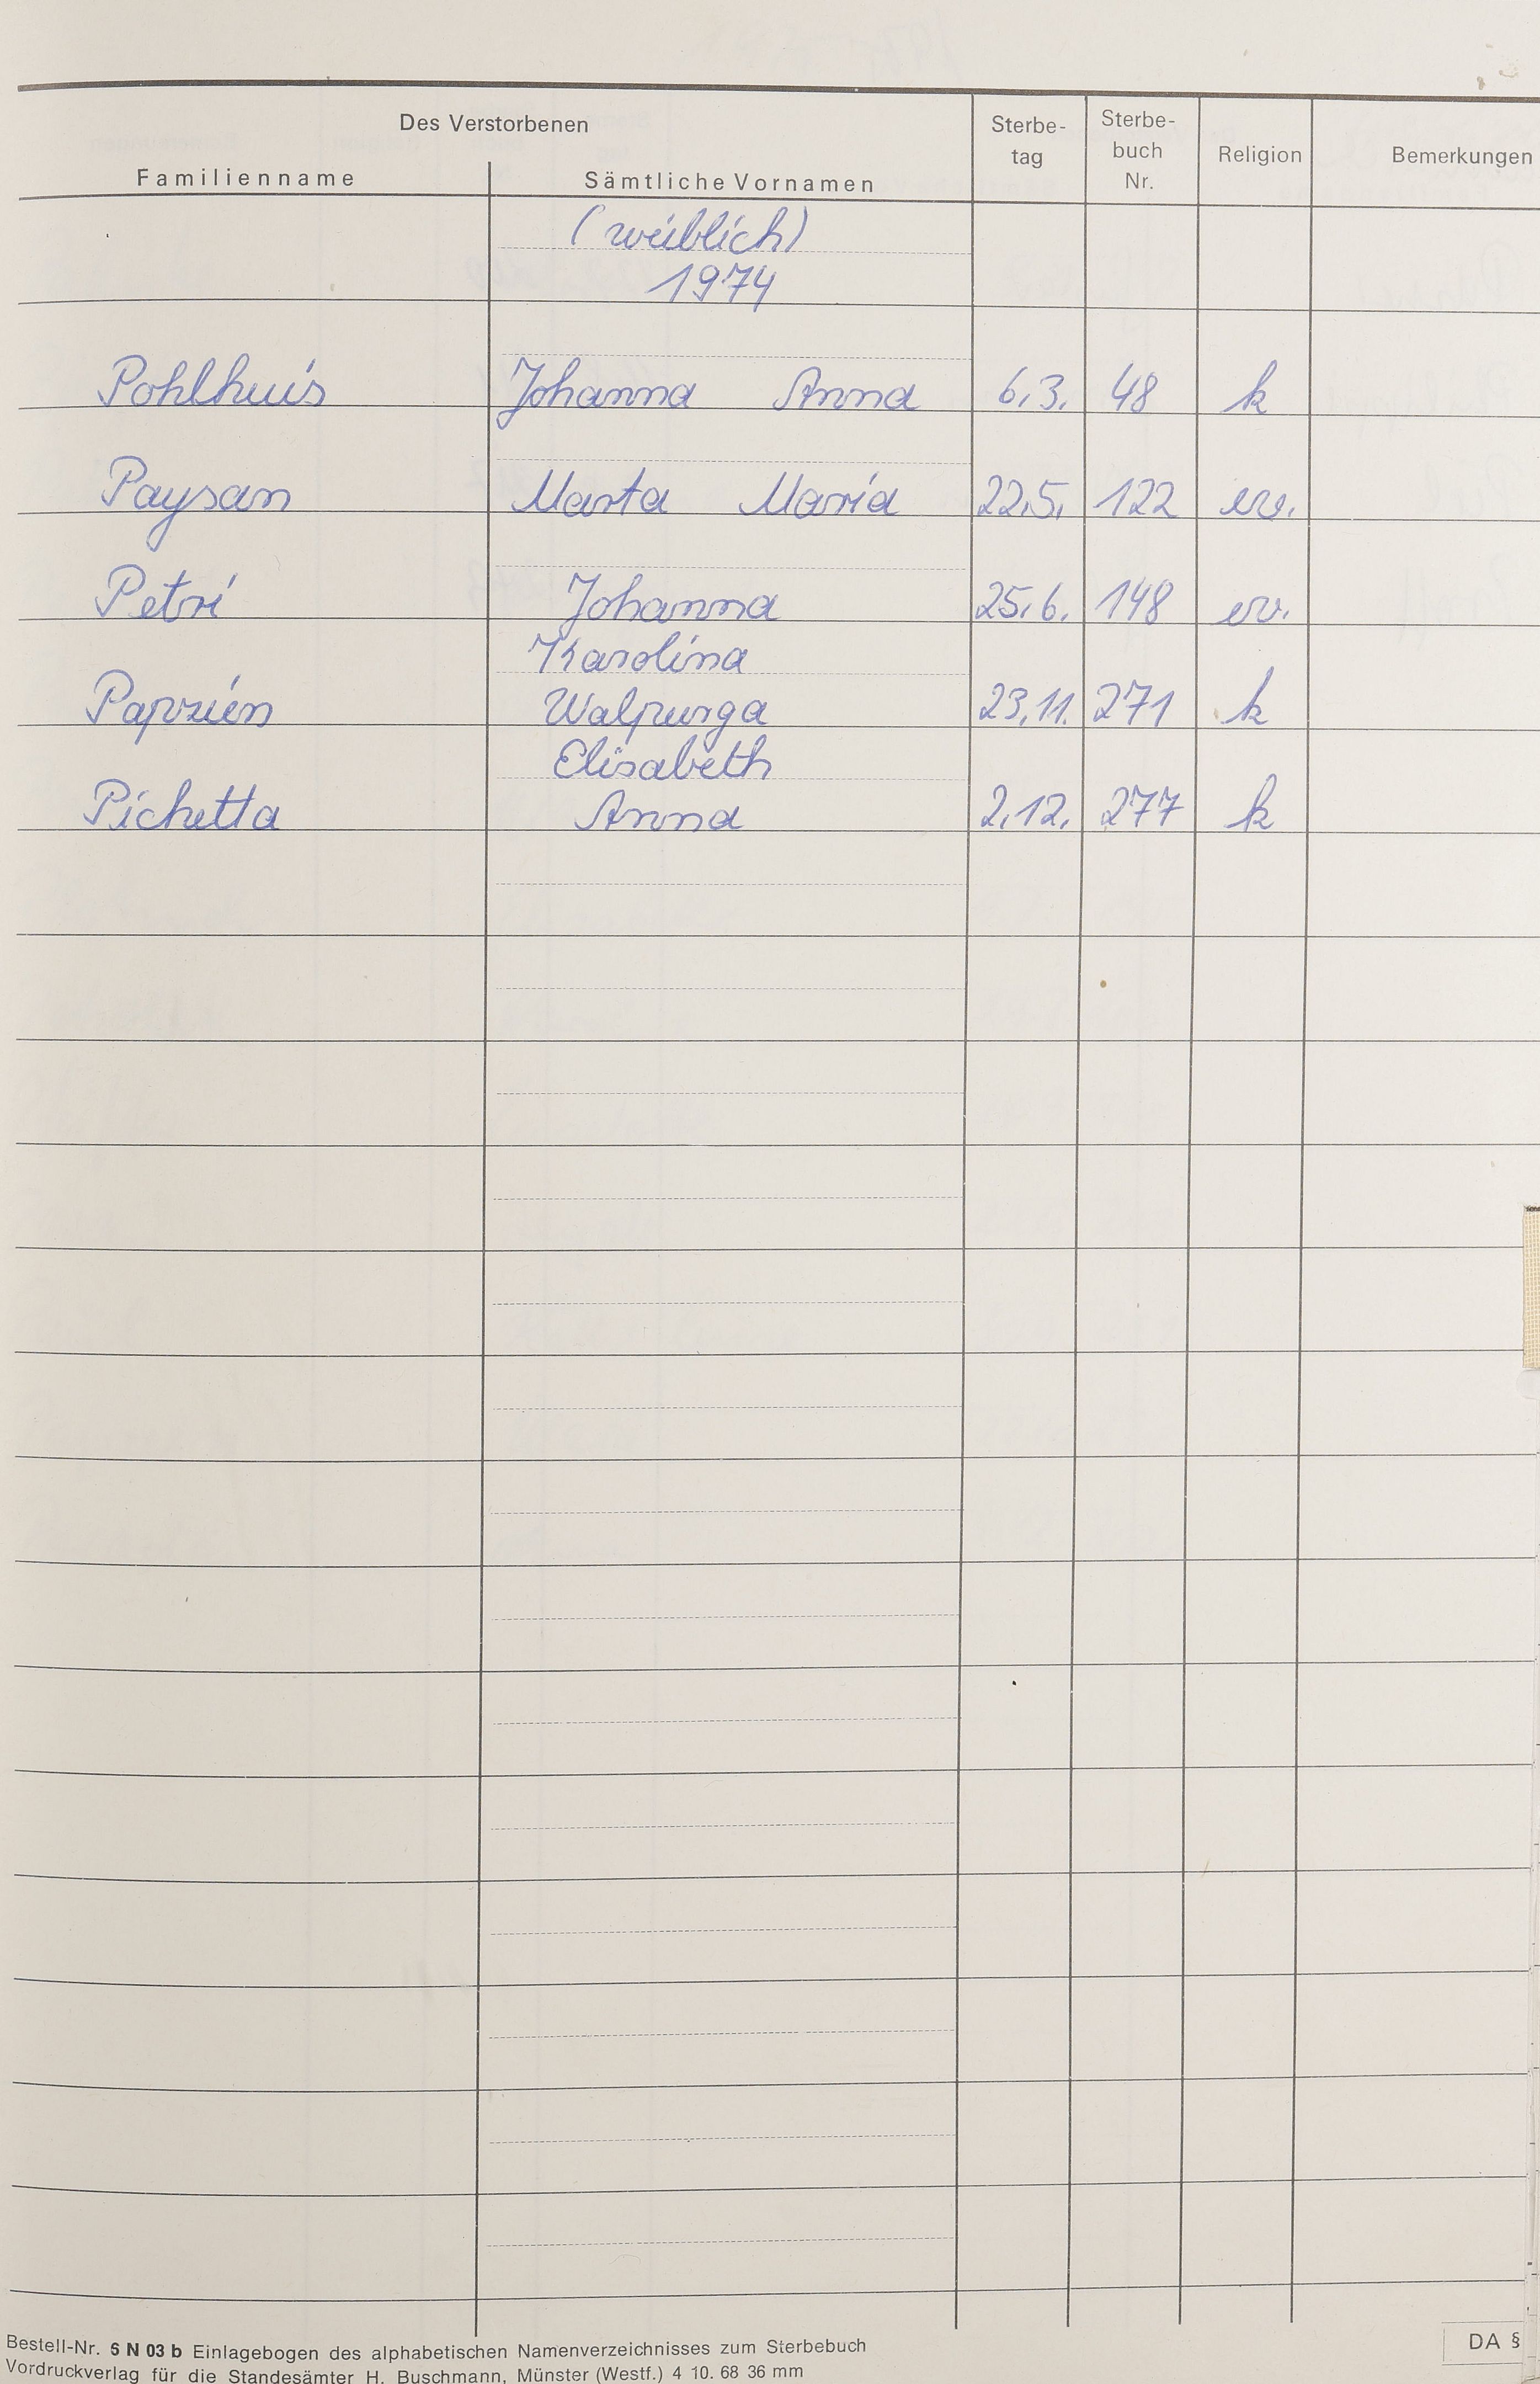 Des Verstorbenen
Familienname Sämtliche Vornamen Sterbe-tag Sterbe-buch Nr. Religion Bemerkungen
(weiblich)
1974
Pohlhuis Johanna Anna 6.3. 48 k
Paysan Marta Maria 22.5. 122 ev.
Petri Johanna 25.6. 148 ev.
Karolina
Papzien Walpurga 23.11. 271 k
Elisabeth
Pichetta Anna 2.12. 277 k
Bestell-Nr. S N 03 b Einlagebogen des alphabetischen Namenverzeichnisses zum Sterbebuch
Vordruckverlag für die Standesämter H. Buschmann, Münster (Westf.) 4 10. 68 36 mm
DA §